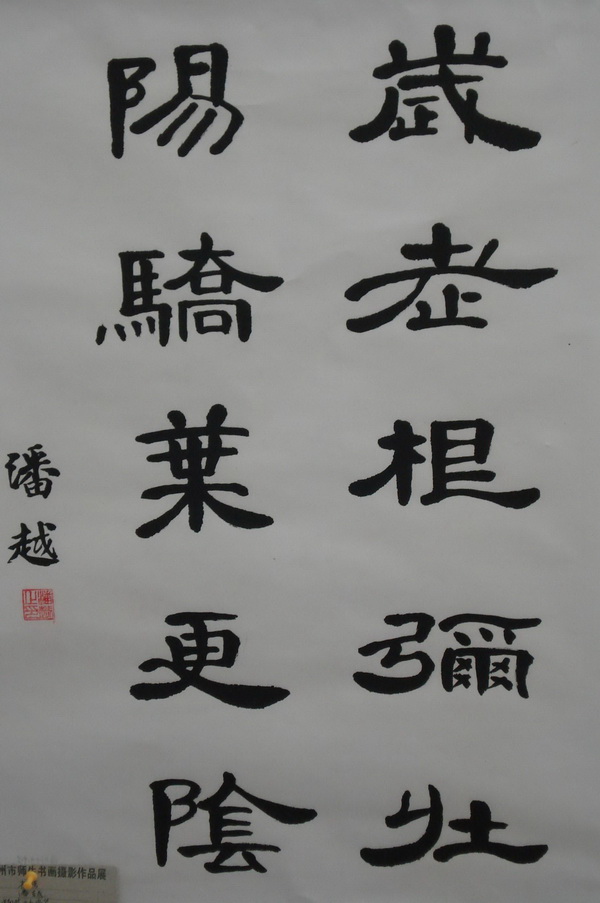 歲老根彌壯
陽驕葉更陰
潘越
州市师生书画摄影作品展